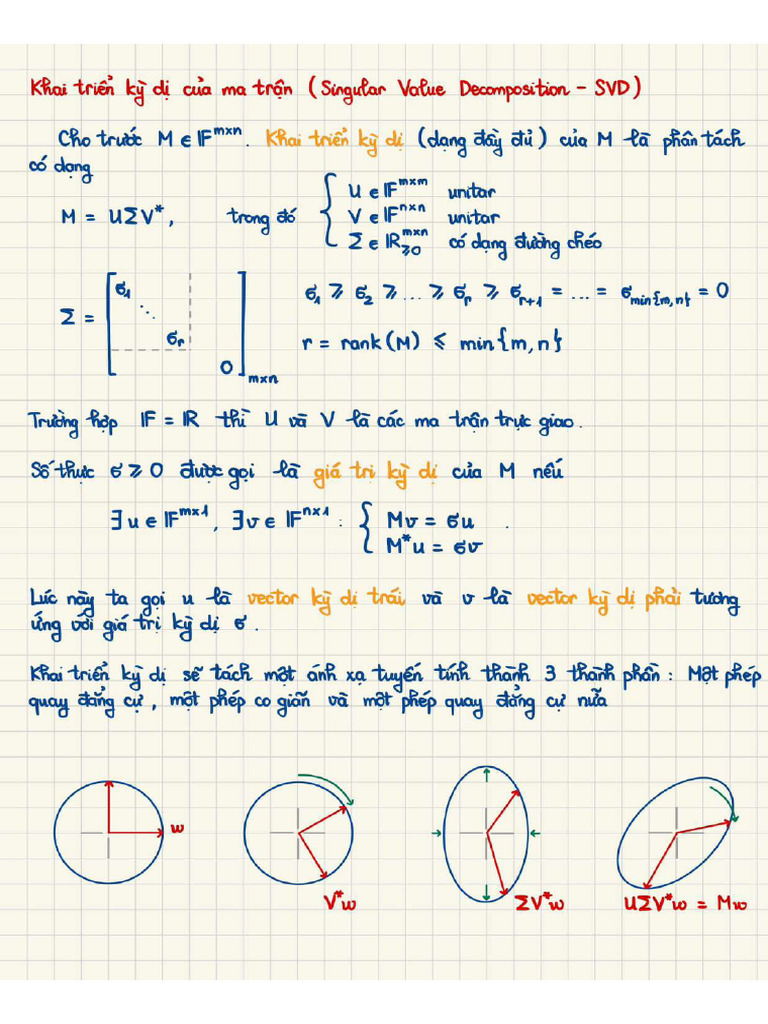 Khai triển kỳ dị của ma trận (Singular Value Decomposition - SVD)
Cho trước M ∈ 𝔽^{m×n}. Khai triển kỳ dị (dạng đầy đủ) của M là phân tách
có dạng
M = UΣV*, trong đó { U ∈ 𝔽^{m×m} unitar
V ∈ 𝔽^{n×n} unitar
Σ ∈ ℝ_{≥0}^{m×n} có dạng đường chéo
Σ = [σ₁ ⋱ σ_r 0]_{m×n}
σ₁ ≥ σ₂ ≥ ... ≥ σ_r ≥ σ_{r+1} = ... = σ_{min{m,n}} = 0
r = rank(M) ≤ min{m,n}
Trường hợp 𝔽 = ℝ thì U và V là các ma trận trực giao.
Số thực σ ≥ 0 được gọi là giá trị kỳ dị của M nếu
∃u ∈ 𝔽^{m×1}, ∃v ∈ 𝔽^{n×1} : { Mv = σu .
M*u = σv
Lúc này ta gọi u là vector kỳ dị trái và v là vector kỳ dị phải tương
ứng với giá trị kỳ dị σ.
Khai triển kỳ dị sẽ tách một ánh xạ tuyến tính thành 3 thành phần : Một phép
quay đẳng cự, một phép co giãn và một phép quay đẳng cự nữa
w
V*w
ΣV*w
UΣV*w = Mw